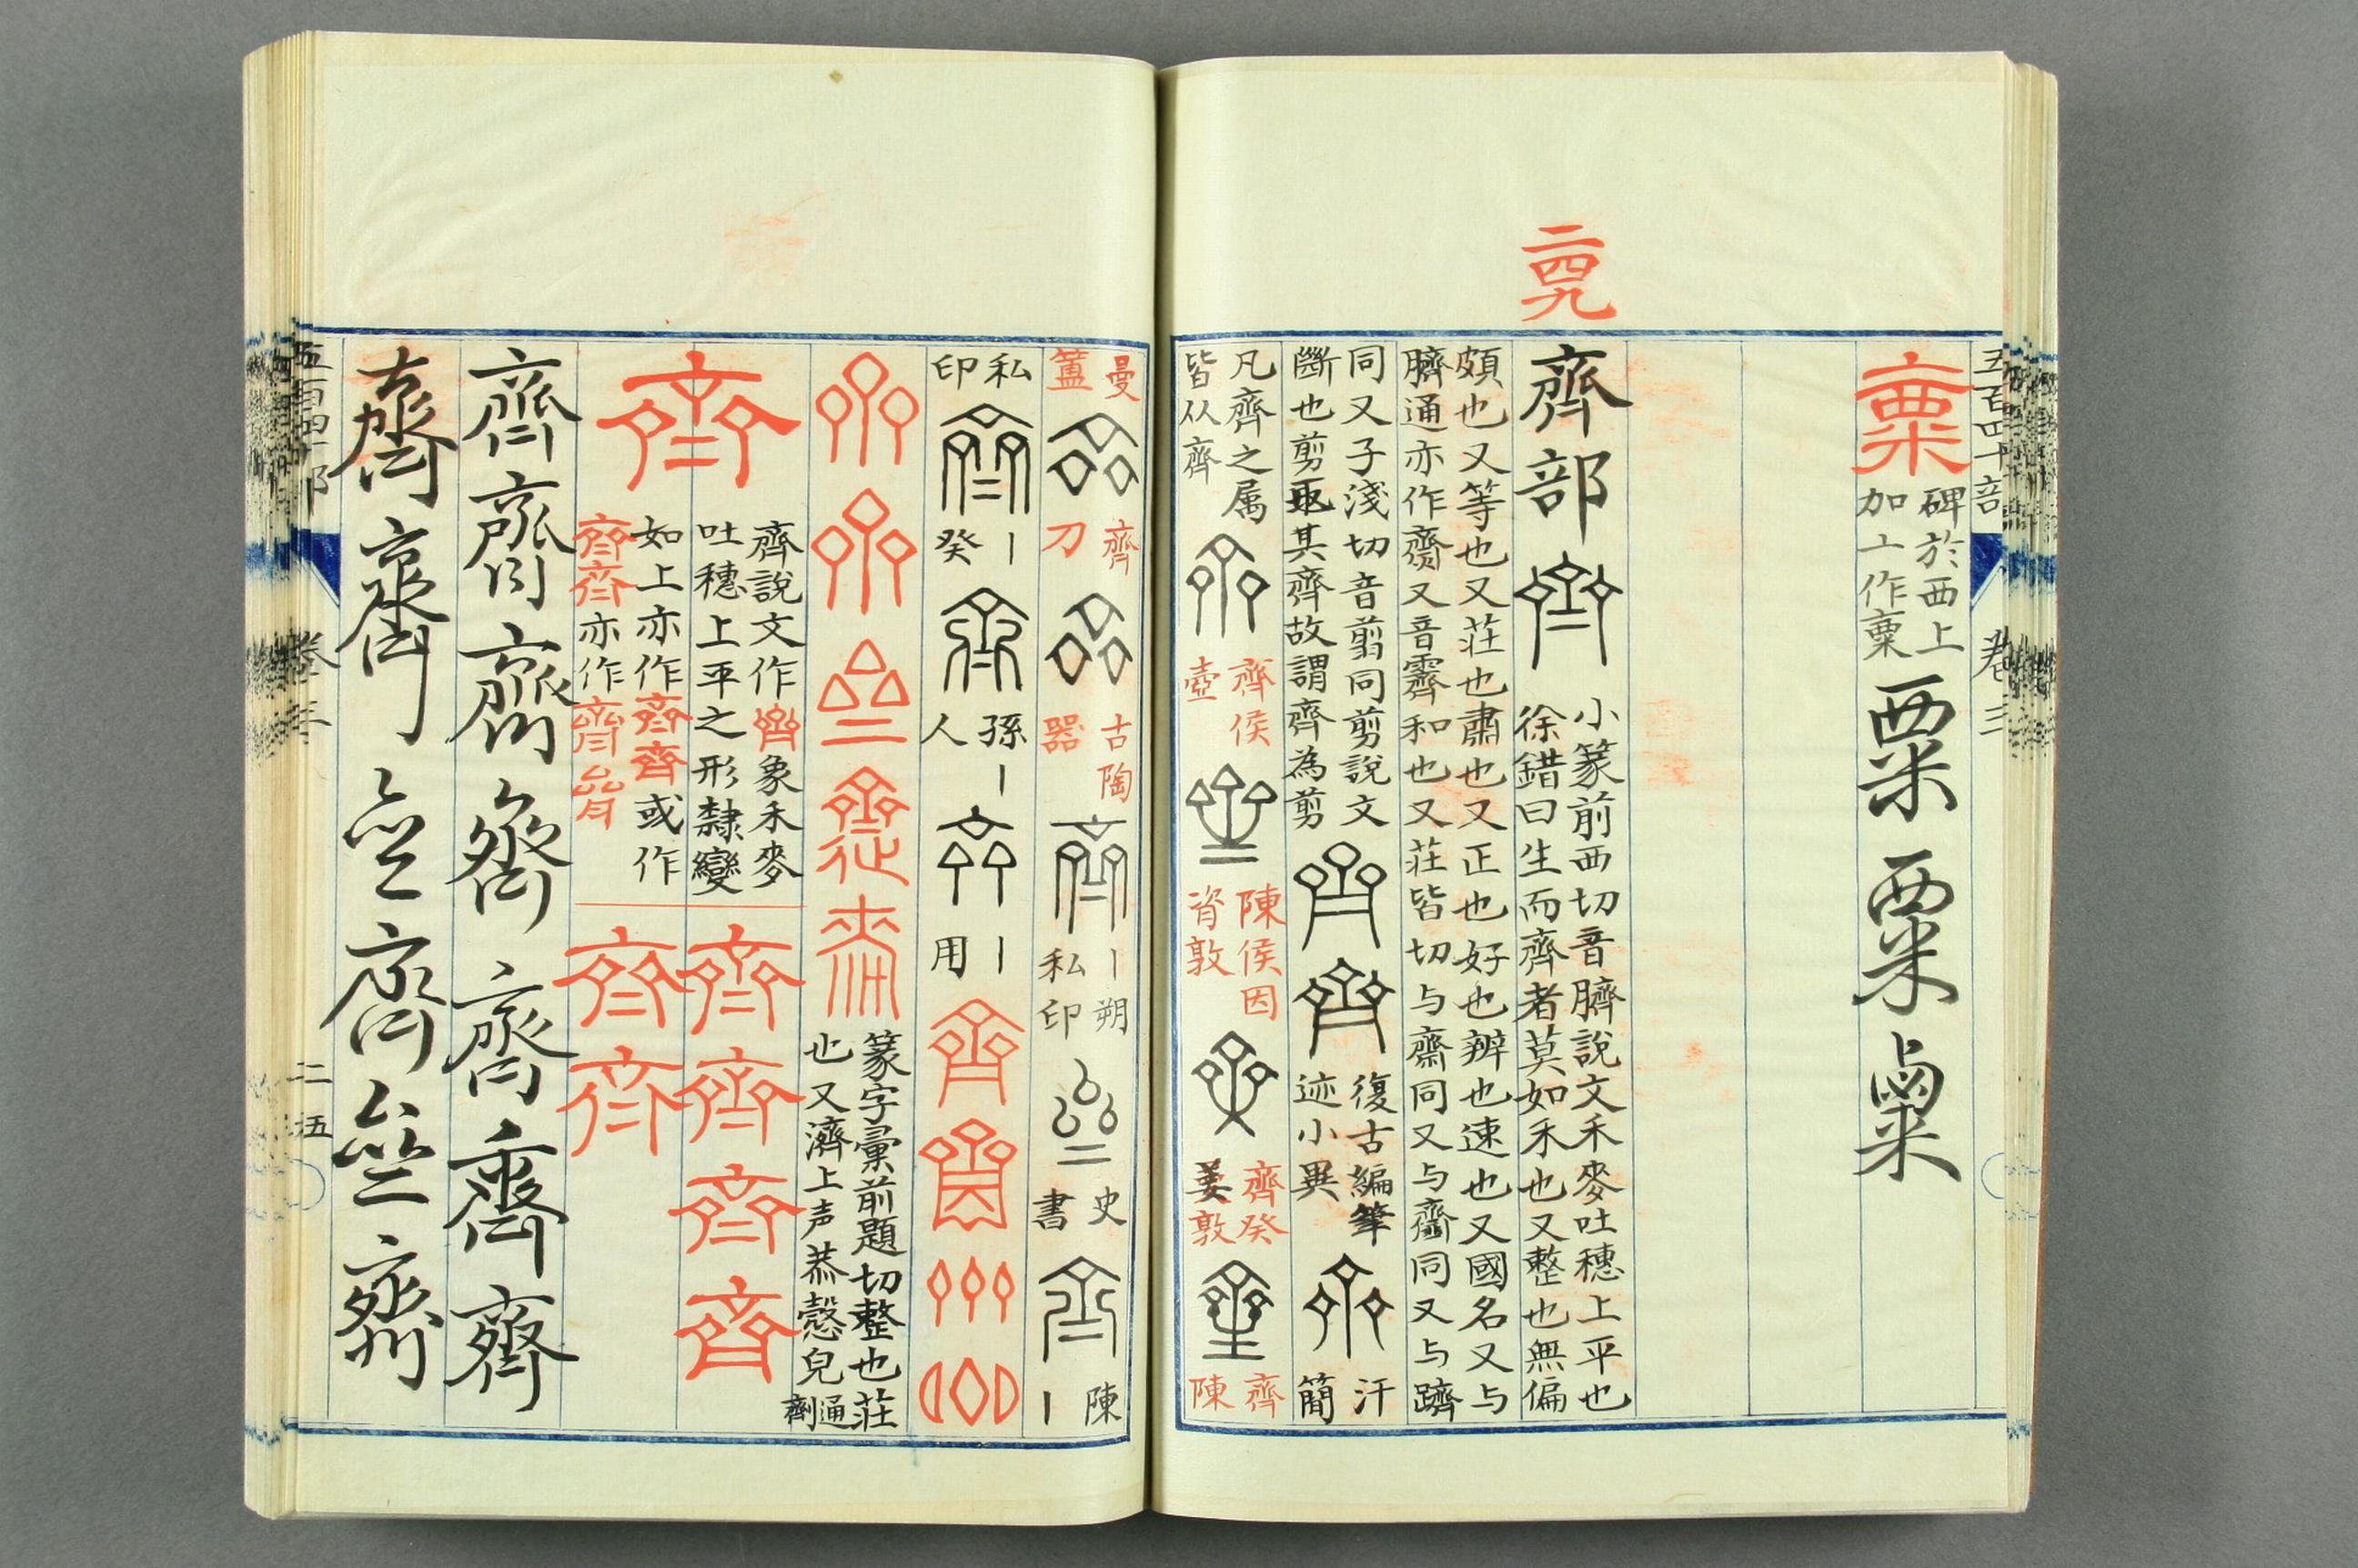 五百四十部 卷三
粟
碑於西上
加亠作粟
粟粟粟
二四九
齊部齊
小篆前西切音臍說文禾麥吐穗上平也
徐錯曰生而齊者莫如禾也又整也無偏
頗也又等也又莊也肅也又正也好也辨也速也又國名又与
臍通亦作齎又音霽和也又莊皆切与齋同又与齍同又与躋
同又子淺切音翦同剪說文
斷也剪取其齊故謂齊為剪
齊齊
復古編筆
迹小異
齊
汗
簡
凡齊之属
皆从齊
齊
齊侯
壺
齊
陳侯因
𬛸敦
齊
齊癸
姜敦
齊
齊
陳
曼
簠
齊
齊
刀
齊
古陶
器
齊
丨朔
私印
齊
史
書
齊
陳
丨
私
印
齊
丨
癸
齊
孫丨
人
齊
丨
用
齊齊齊齊
齊齊齊齊齊
篆字彙前題切整也莊
也又濟上声恭慤皃
通
劑
齊
齊說文作齊象禾麥
吐穗上平之形隸變
如上亦作齊齊或作
齊齊亦作齊齊
齊齊齊齊
齊齊
齊齊齊齊齊齊齊
齊齊齊齊齊齊
五百四十部 卷三 二五